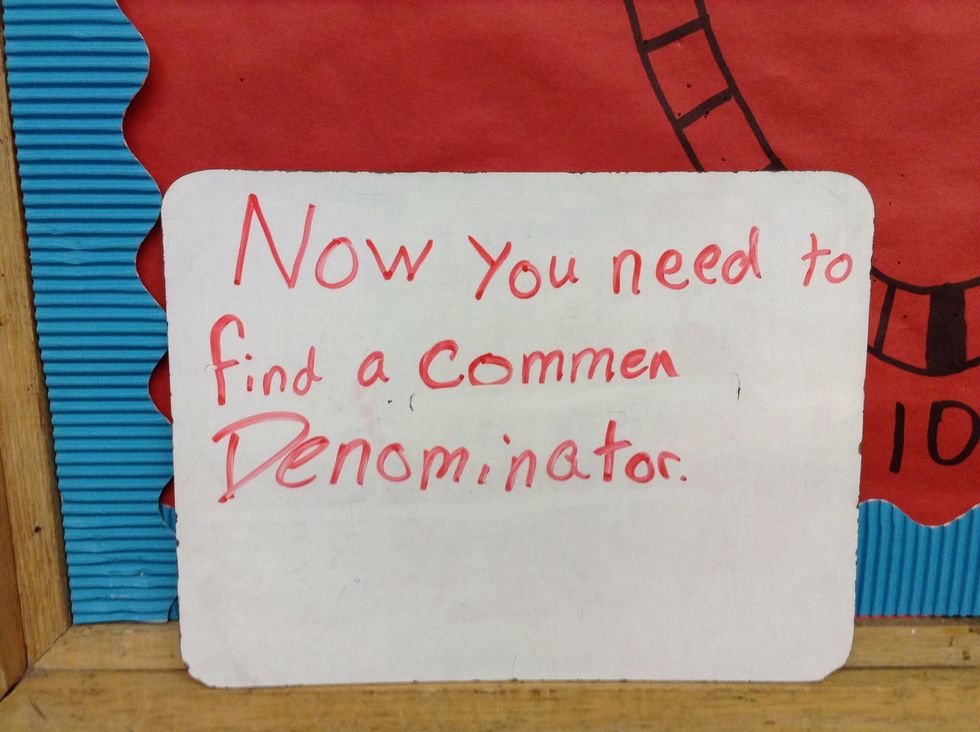 Now you need to
find a commen
Denominator.
10